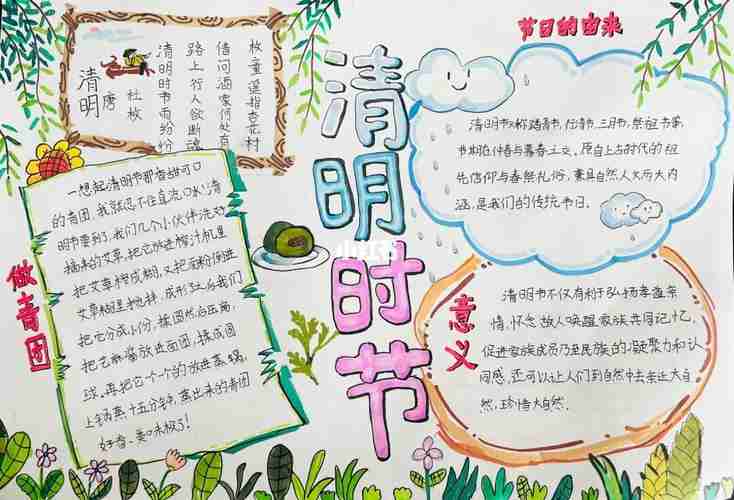 清明
唐
杜牧
清明时节雨纷纷
路上行人欲断魂
借问酒家何处有
牧童遥指杏花村
清明时节
小红书
节日的由来
清明节又称踏青节、行清节、三月节、祭祖节等,
节期在仲春与暮春之交。源自上古时代的祖
先信仰与春祭礼俗,兼具自然人文两大内
涵,是我们的传统节日。
做青团
一想起清明节那香甜可口
的青团,我就忍不住直流口水!清
明节要到了,我们几个小伙伴洗好
摘来的艾草,把它放进榨汁机里
把艾草榨成糊,又把面粉倒进
艾草糊里搅拌,成形之后我们
把它分成小份,揉圆然后压扁,
把芝麻酱放进面团,揉成圆
球,再把它一个个的放进蒸锅,
上锅蒸十五分钟,蒸出来的青团
好香、美味极了!
意义
清明节不仅有利于弘扬孝道亲
情,怀念故人唤醒家族共同记忆,
促进家族成员乃至民族的凝聚力和认
同感,还可以让人们到自然中去亲近大自
然,珍惜大自然.